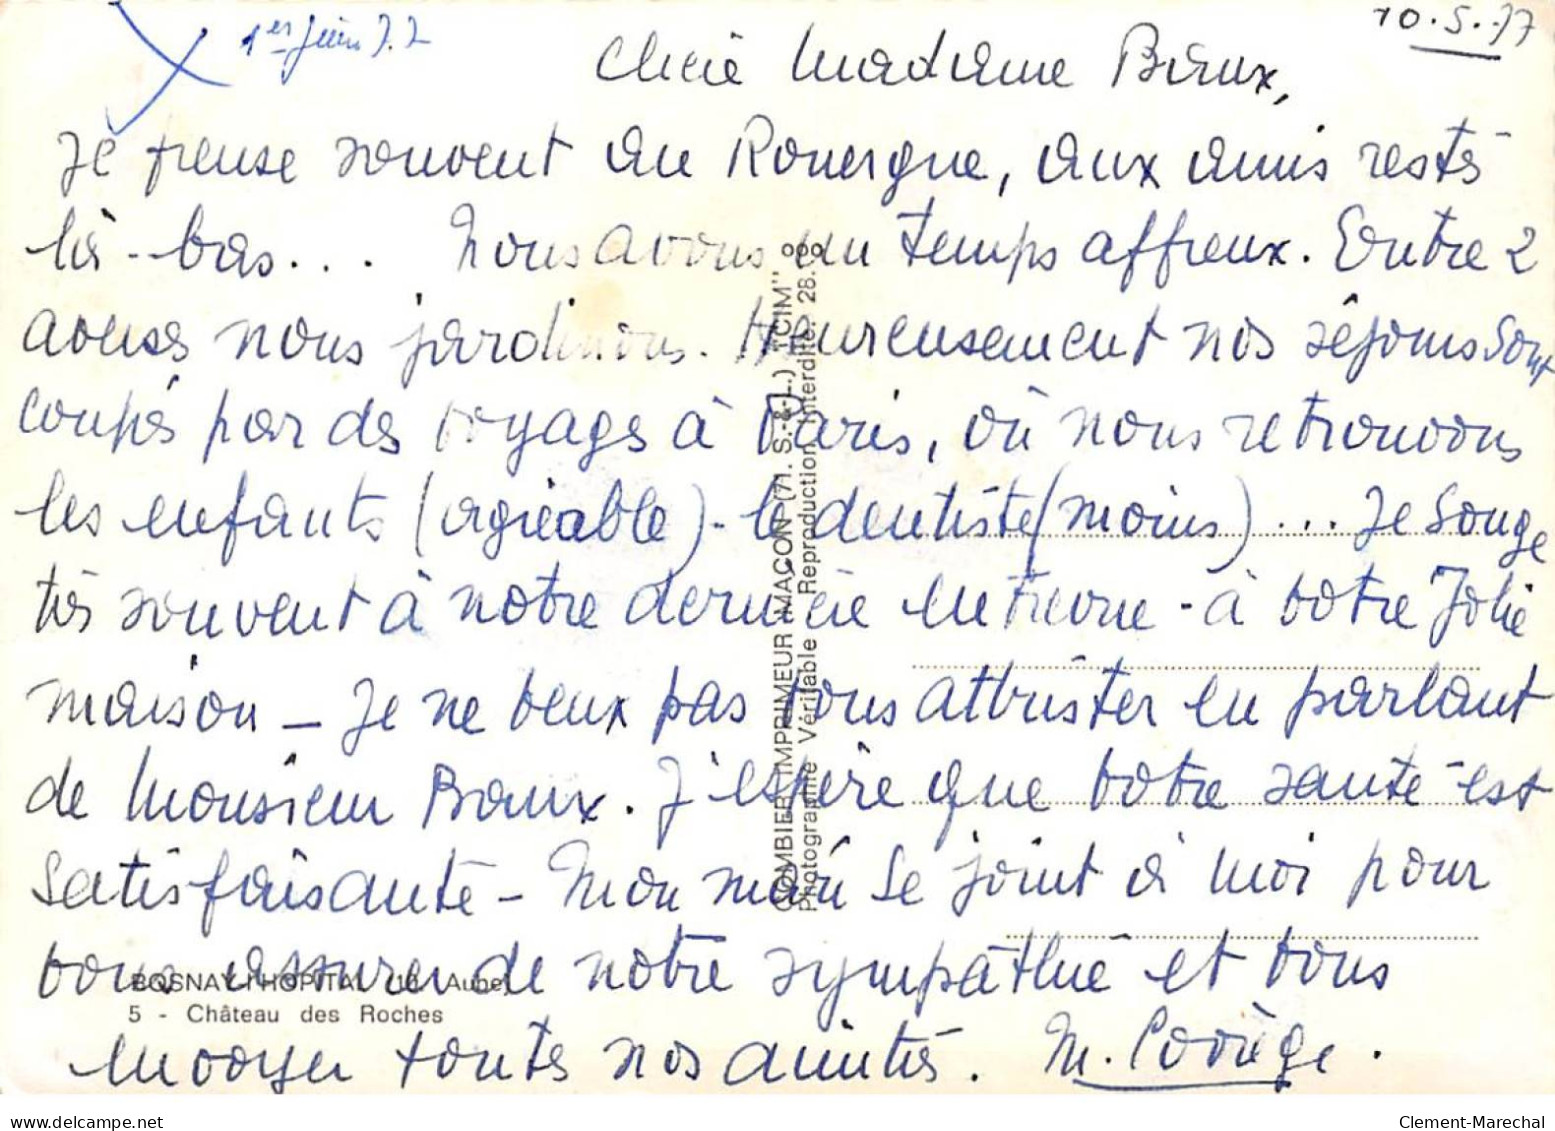 1er Juin 7.7
10.5.77
Chère Madame Baux,
Je pense souvent au Rouergue, aux amis restés
là-bas... Nous avons un temps affreux. Entre 2
averses nous jardinons. Heureusement nos séjours sont
coupés par des voyages à Paris, où nous retrouvons
les enfants (agréable) - le dentiste (moins)... Je songe
très souvent à notre dernière entrevue - à votre jolie
maison - Je ne veux pas vous attrister en parlant
de Monsieur Baux. J'espère que votre santé est
satisfaisante - Mon mari se joint à moi pour
vous assurer de notre sympathie et vous
envoyer toutes nos amitiés. M. Corrège.
BOSNAY-l'HOPITAL (10 - Aube)
5 - Château des Roches
COMBIER IMPRIMEUR MACON (71. S.-&-L.) "CIM"
Photographie Véritable Reproduction Interdite.
www.delcampe.net
Clement-Marechal